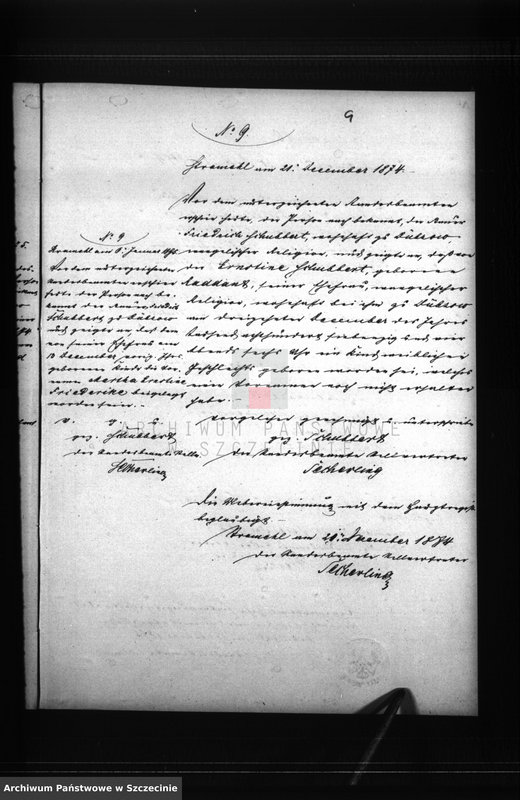 9
No 9.
Stramehl am 21. December 1874.
Vor dem unterzeichneten Standesbeamten
erschien heute, der Person nach bekannt, der
Friedrich Schubbert, wohnhaft zu
evangelischer Religion, und zeigte an, daß von
der Ernstine Schubbert, geborenen
Raddant, seiner Ehefrau, evangelischer
Religion, wohnhaft bei ihm zu
am dreizehnten December des Jahres
tausend achthundert siebenzig und vier
Abends sechs Uhr ein Kind weiblichen
Geschlechts geboren worden sei, welches
einen Vornamen noch nicht erhalten
habe.
Vorgelesen, genehmigt und unterschrieben
gez. Schubbert
Der Standesbeamte Stellvertreter
Secherling
Die Uebereinstimmung mit dem Hauptregister
beglaubigt
Stramehl am 21. December 1874
Der Standesbeamte Stellvertreter
Secherling
No 9
Stramehl am 5. Januar
Vor dem unterzeichneten
Standesbeamten erschien
heute, der Person nach be-
kannt, der
Schubbert zu
und zeigte an, daß dem
von seiner Ehefrau am
13 December vorig. Jhrs.
geborenen Kinde die Vor-
namen Martha Ernstine
Friederike beigelegt
worden seien.
v. g. u.
gez. Schubbert
Der Standesbeamte Stellv.
Secherling
ARCHIWUM PAŃSTWOWE
W SZCZECINIE
Archiwum Państwowe w Szczecinie